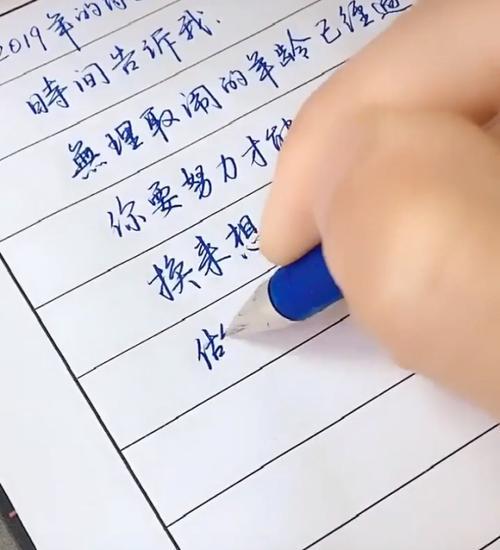 2019年的
時间告诉我.
無理取闹的年龄已經過
你要努力才能
换来想
估